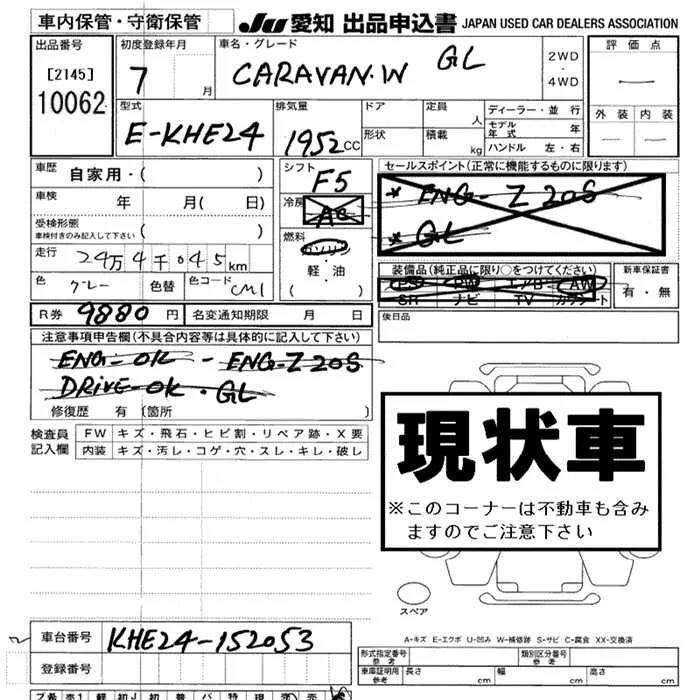 車内保管・守衛保管
JU 愛知 出品申込書 JAPAN USED CAR DEALERS ASSOCIATION
出品番号
[2145]
10062
初度登録年月
7 月
車名・グレード
CARAVAN.W GL
2WD
・
4WD
評価点
外装 内装
型式
E-KHE24
排気量
1952 CC
ドア
形状
定員 人
積載 kg
ディーラー・並行
モデル年式 年
ハンドル 左・右
車歴 自家用・( )
車検 年 月( 日)
受検形態
車検付きのみ記入して下さい ( )
走行 24万4千045km
色 グレー 色替 色コード CM1
R券 9880円 名変通知期限 月 日
シフト
F5
冷房
AC
燃料
ガソリン
軽・油
( )
セールスポイント(正常に機能するものに限ります)
* ENG-Z20S
* GL
装備品(純正品に限り○をつけてください)
PS PW エアB AW
SR ナビ TV カワシート
新車保証書
有・無
後日品
注意事項申告欄(不具合内容等は具体的に記入して下さい)
ENG-OK - ENG-Z20S
DRIVE-OK・GL
修復歴 有 (箇所 )
検査員記入欄
FW キズ・飛石・ヒビ割・リペア跡・X要
内装 キズ・汚レ・コゲ・穴・スレ・キレ・破レ
現状車
※このコーナーは不動車も含み
ますのでご注意下さい
スペア
A-キズ E-エクボ U-凹み W-補修跡 S-サビ C-腐食 XX-交換済
車台番号 KHE24-152053
登録番号
形式指定番号
参考
類別区分番号
参考
車庫証明用
参考
長さ cm 幅 cm 高さ cm